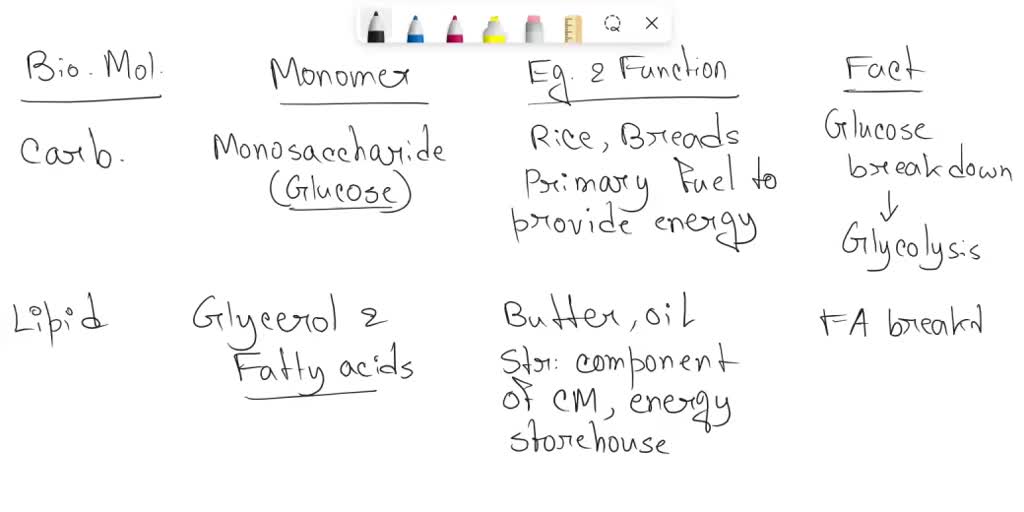 Bio. Mol. Monomer Eg. & Function Fact
Carb. Monosaccharide (Glucose) Rice, Breads
Primary Fuel to
provide energy
Glucose
breakdown
↓
Glycolysis
Lipid Glycerol &
Fatty acids
Butter, oil
Str: component
of CM, energy
storehouse
FA breakd